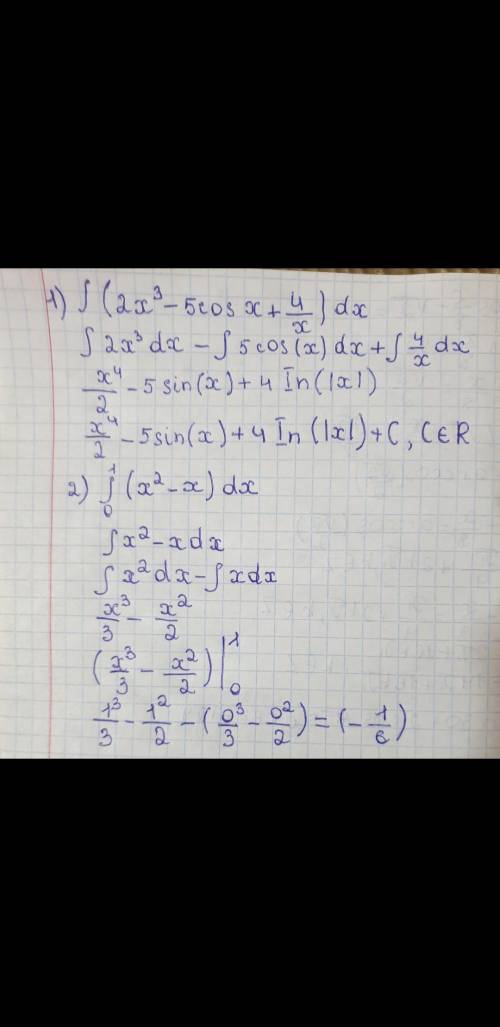 1) ∫ (2x³ - 5cos x + 4/x) dx
∫ 2x³ dx - ∫ 5cos(x) dx + ∫ 4/x dx
x⁴/2 - 5 sin(x) + 4 In(|x|)
x⁴/2 - 5sin(x) + 4 In(|x|) + C, C ∈ R
2) ∫₀¹ (x² - x) dx
∫ x² - x dx
∫ x² dx - ∫ x dx
x³/3 - x²/2
(x³/3 - x²/2) |₀¹
1³/3 - 1²/2 - (0³/3 - 0²/2) = (- 1/6)